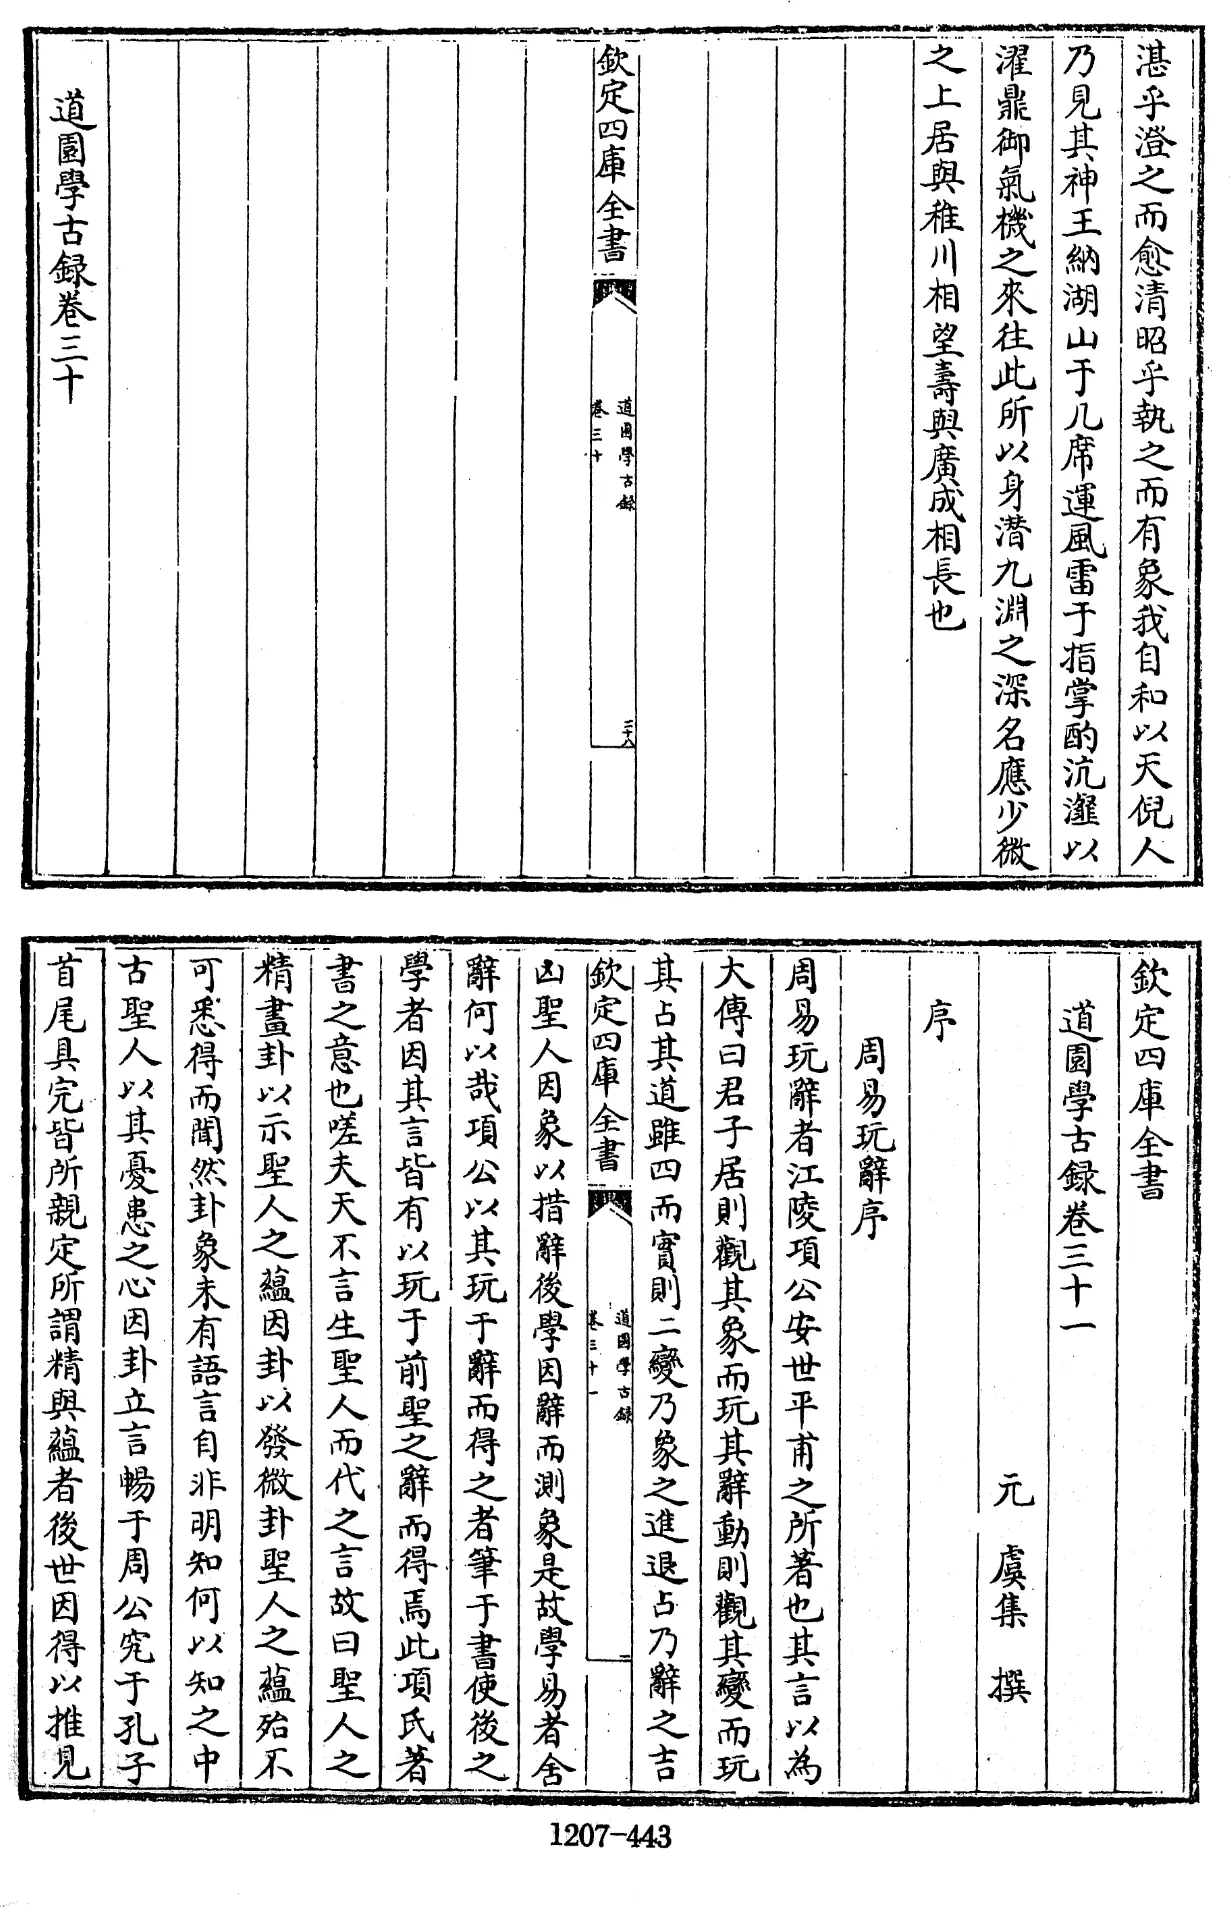 湛乎澄之而愈清昭乎執之而有象我自和以天倪人
乃見其神王納湖山于几席運風雷于指掌酌沆瀣以
濯鼎御氣機之來往此所以身潛九淵之深名應少微
之上居與稚川相望壽與廣成相長也
欽定四庫全書
道園學古錄
卷三十
三十八
道園學古録卷三十
欽定四庫全書
道園學古録卷三十一
元 虞集 撰
序
周易玩辭序
周易玩辭者江陵項公安世平甫之所著也其言以為
大傳曰君子居則觀其象而玩其辭動則觀其變而玩
其占其道雖四而實則二變乃象之進退占乃辭之吉
欽定四庫全書
道園學古録
卷三十一
一
凶聖人因象以措辭後學因辭而測象是故學易者舍
辭何以哉項公以其玩于辭而得之者筆于書使後之
學者因其言皆有以玩于前聖之辭而得焉此項氏著
書之意也嗟夫天不言生聖人而代之言故曰聖人之
精畫卦以示聖人之蘊因卦以發微卦聖人之蘊殆不
可悉得而聞然卦象未有語言自非明知何以知之中
古聖人以其憂患之心因卦立言暢于周公究于孔子
首尾具完皆所親定所謂精與蘊者後世因得以推見
1207-443